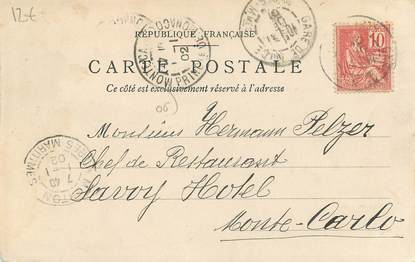 12€
RÉPUBLIQUE FRANÇAISE
CARTE POSTALE
Ce côté est exclusivement réservé à l'adresse
10
06
Monsieur Hermann Pelzer
Chef de Restaurant
Savoy Hotel
Monte-Carlo